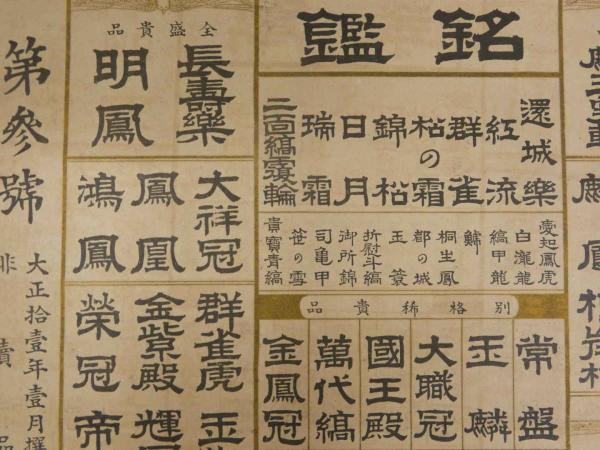 銘鑑
還城樂
紅流
群雀
松の霜
錦松
日月
瑞霜
二面縞覆輪
愛知鳳虎
白瀧龍
縞甲龍
鯱
桐生鳳
都の城
玉簑
折熨斗縞
御所錦
司亀甲
笹の雪
貴寶青縞
別格稀貴品
常盤
玉麟
大職冠
國王殿
萬代縞
金鳳冠
全盛貴品
長壽樂
明鳳
大祥冠
鳳凰
鴻鳳
群雀虎
金紫殿
榮冠
玉
輝
帝
第參號
大正拾壹年壹月撰
非賣品